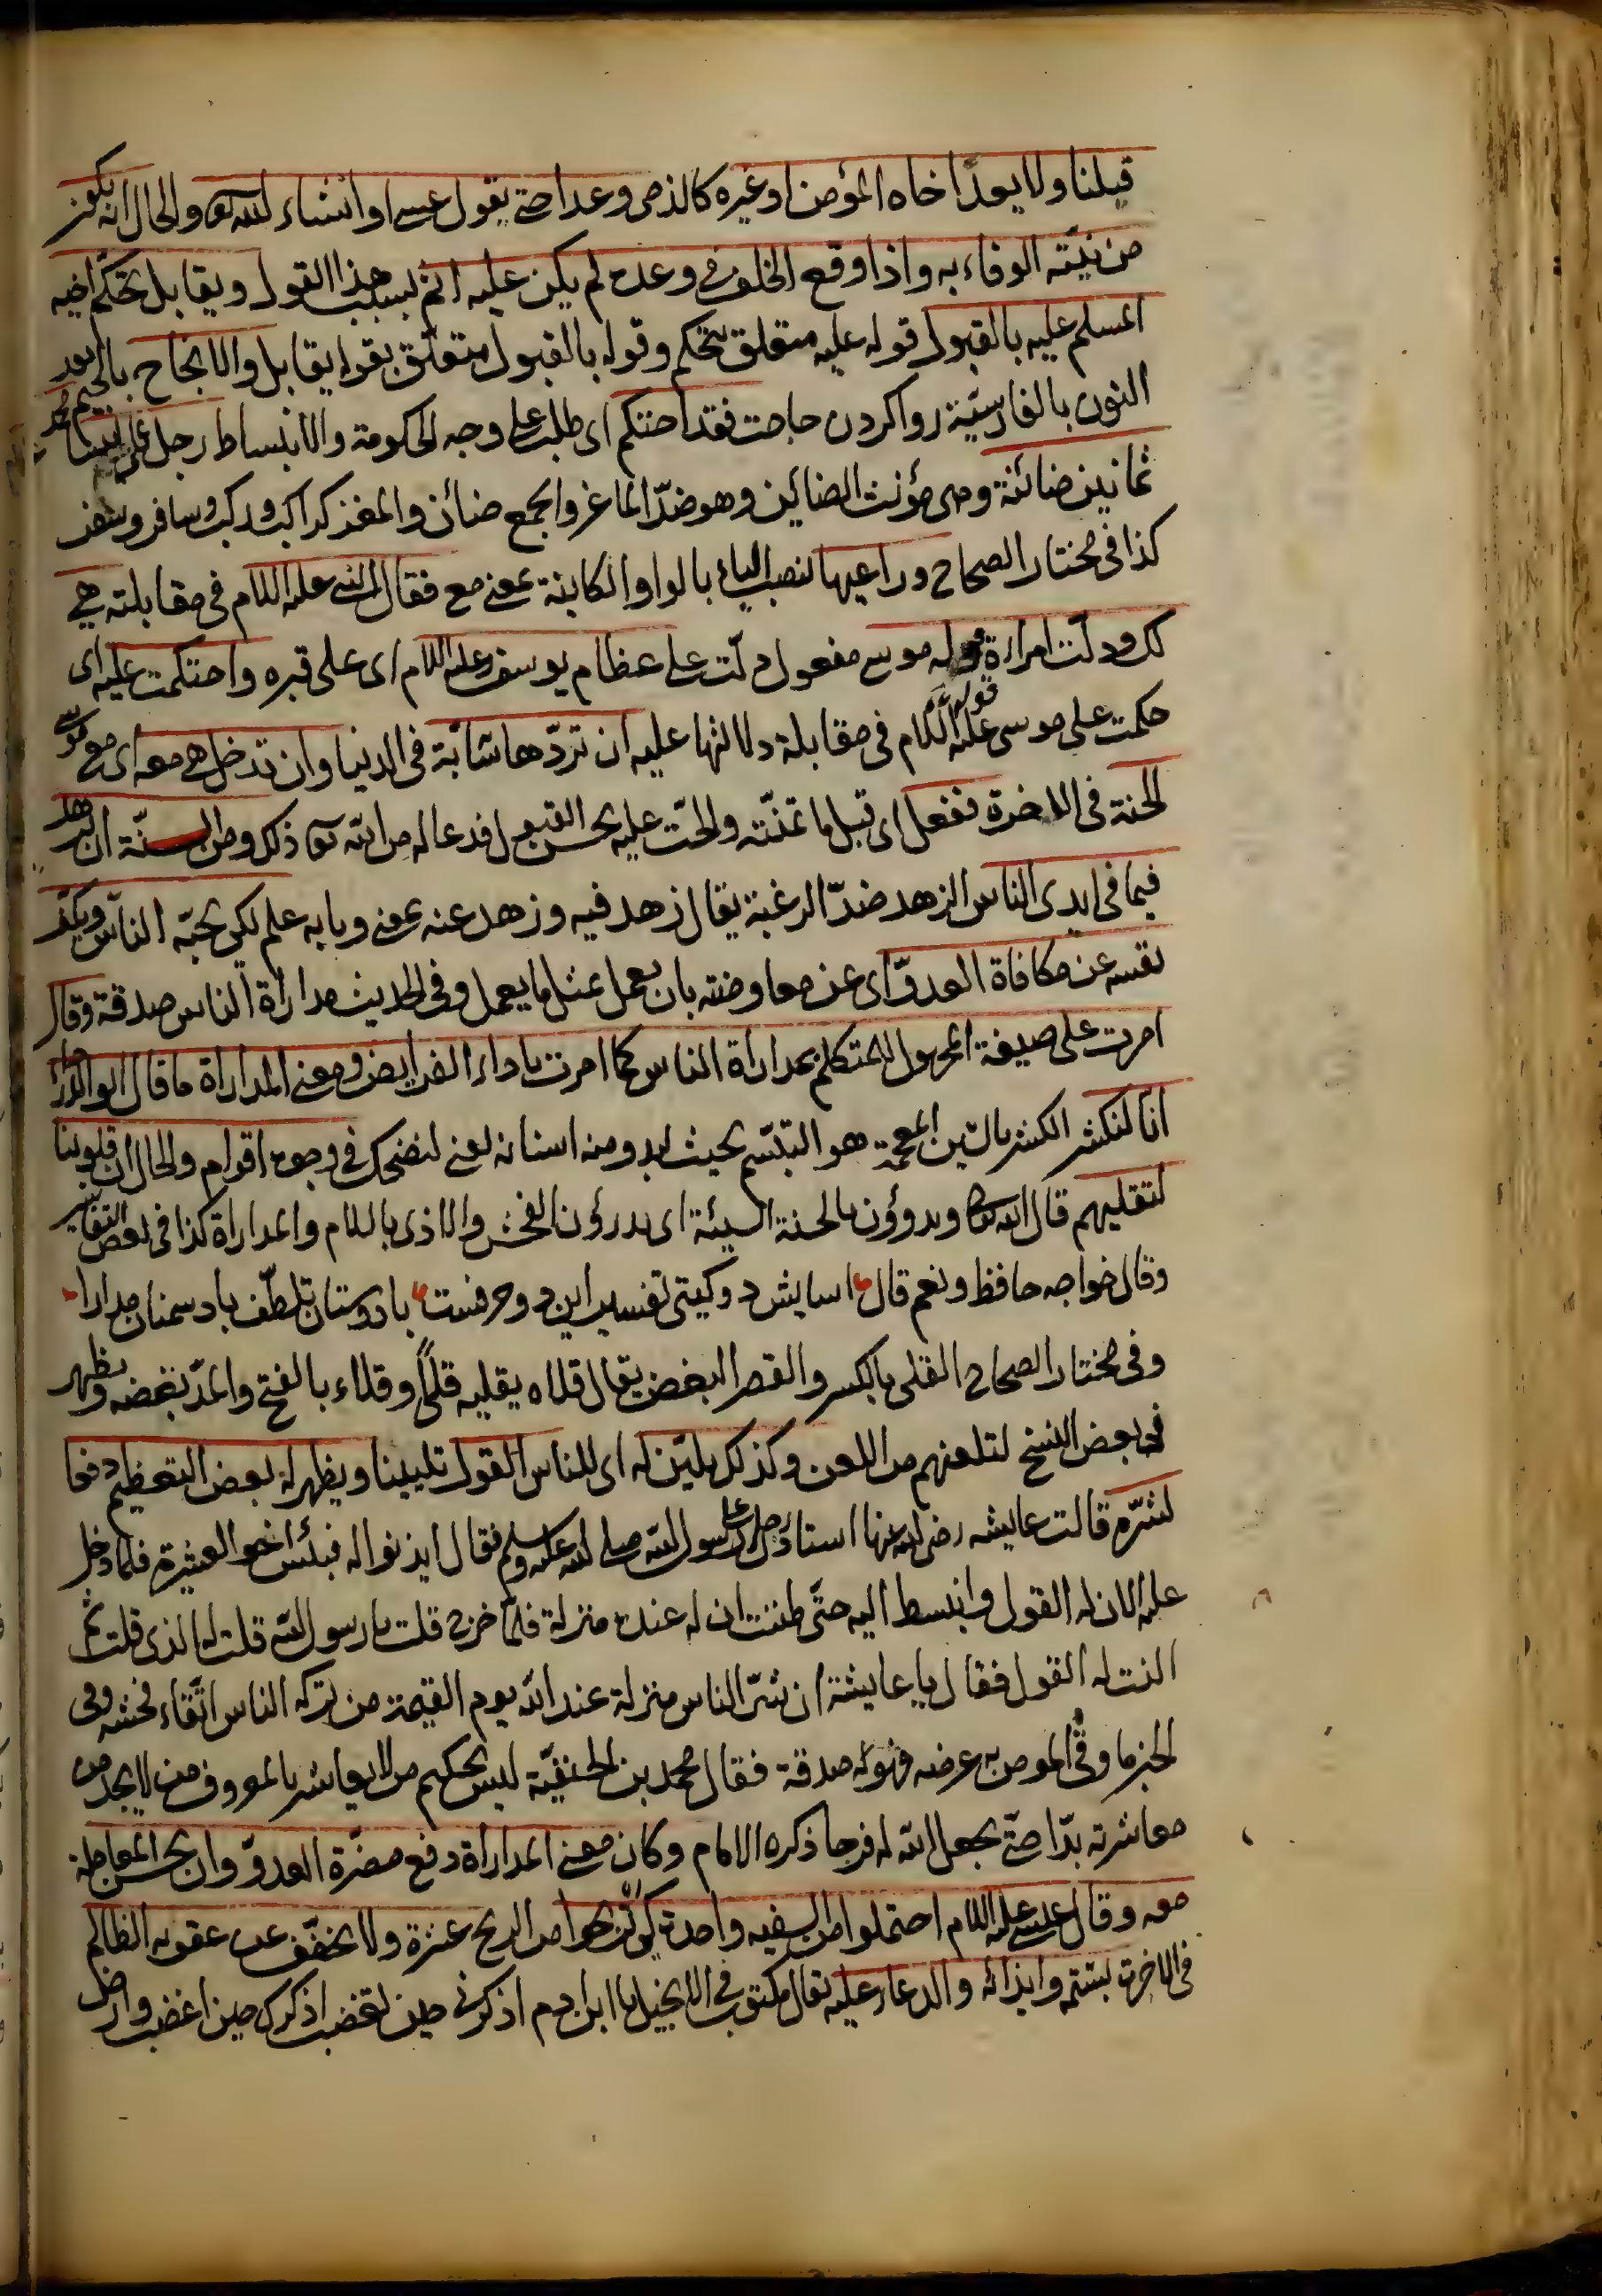 قبلنا ولا يعد اخاه المؤمن او غيره كالذمى وعدا حتى يقول عسى او انشاء الله تعالى والحال انه يكون
من نيّته الوفاء به واذا وقع الخلف فى وعده لم يكن عليه اثم بسبب هذا القول ويقابل تحكّم اخيه
المسلم عليه بالقبول قوله عليه متعلق بتحكم وقوله بالقبول متعلق بقوله يقابل والانجاح بالجيم بعد
النون بالفارسيّة روا كردن حاجت فقد احتكم اى طلب على وجه الحكومة والانبساط رجل على نبينا محمد
ثمانين ضائنة وهى مؤنث الضائين وهو ضدّ الماعز والجمع ضائن والمعز كراكب وركب وسافر وسفر
كذا فى مختار الصحاح وراعيها بنصب الياء بالواو الكاينة بمعنى مع فقال النبى عليه السلام فى مقابلته هى
لك ودلّت امراءة موسى مفعول دلّت على عظام يوسف عليه السلام اى على قبره واحتكمت عليه اى
حكمت على موسى عليه السلام فى مقابلة دلالتها عليه ان تردّها شابّة فى الدنيا وان تدخل هى معه اى مع موسى
الجنة فى الاخرة ففعل اى قبل ما تمنّته والحّت عليه بحسن القبول فدعا له من الله تعالى ذلك ومن السنّة ان يزهد
فيما فى ايدى الناس الزهد ضدّ الرغبة يقال زهد فيه وزهد عنه بمعنى وبابه علم لكى يحبّه الناس ويكفّ
نفسه عن مكافاة العدوّ اى عن معاوضته بان يعمل بمثل ما يعمل وفى الحديث مداراة الناس صدقة وقال
امرت على صيغة المجهول للمتكلم بمداراة الناس كما امرت باداء الفرايض ومعنى المداراة ما قال ابو الدرداء
انّا لنكشر الكشر بالشين المعجمة هو التبسّم بحيث يبدو منه اسنانه يعنى لنضحك فى وجوه اقوام والحال ان قلوبنا
لتقليهم قال الله تعالى ويدرؤن بالحسنة السيئة اى يدرؤن الفحش والاذى بالسلام والمداراة كذا فى بعض التفاسير
وقال خواجه حافظ ونعم قال اسايش دو كيتى تفسير اين دو حرفست با دوستان تلطّف با دشمنان مدارا
وفى مختار الصحاح القلى بالكسر والقصر البغض يقال قلاه يقليه قلًى وقلاء بالفتح والمدّ يبغضه ويظهر
فى بعض النسخ لتلعنهم من اللعن وكذلك يليّن له اى للناس القول تليينا ويظهر له بعض التعظيم دفعا
لشرّه قالت عايشه رضى الله عنها استاذن رجل على رسول الله صلى الله عليه وسلم فقال ايذنوا له فبئس اخو العشيرة فلما دخل
عليه الان له القول وانبسط اليه حتّى ظننت ان له عنده منزلة فلمّا خرج قلت يا رسول الله قلت له الذى قلت ثم
النت له القول فقال يا عايشة ان شرّ الناس منزلة عند الله يوم القيمة من تركه الناس اتّقاء فحشه وفى
الخبر ما وقى المومن به عرضه فهو له صدقة فقال محمد بن الحنفيّة ليس بحكيم من لا يعاشر بالمعروف من لا يجد من
معاشرته بدّا حتّى يجعل الله له فرجا ذكره الامام وكان معنى المداراة دفع مضرّة العدوّ وان يحسن المعاملة
معه وقال عيسى عليه السلام احتملوا من السفيه واحدة كى تربحوا من الربح عشرة ولا يخفّف عن عقوبة الظالم
فى الاخرة بشتمه وايذائه والدعاء عليه يقال مكتوب فى الانجيل يا ابن ادم اذكرنى حين تغضب اذكرك حين اغضب وارض